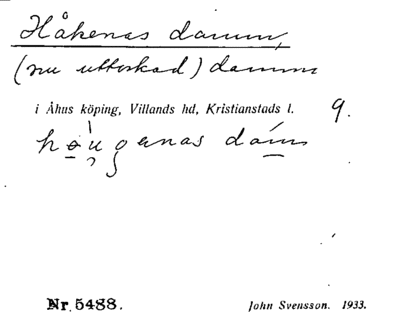 Håkenas damm,
(nu uttorkad) damm
i Åhus köping, Villands hd, Kristianstads l. 9.
hougenas dam
Nr 5488. John Svensson. 1933.